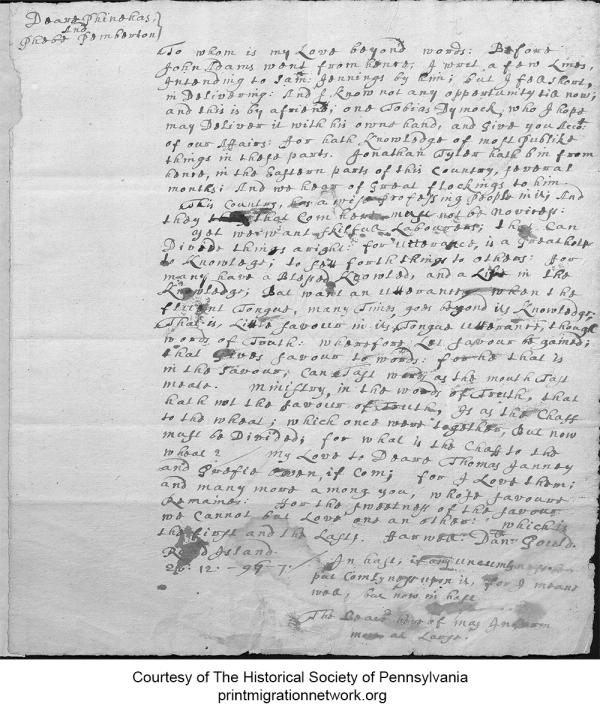 Deare Phinehas,
And
Phebe Pemberton
To whom is my Love beyond words: Before
John Adams went from hence, I writ a few Lines,
Intending to Sam: Jennings by him; but I fell short,
in Delivering: And I know not any oppertunity till now;
and this is by a friend; one Tobias Dymock, who I hope
may Deliver it with his owne hand, and Give you Acco:
of our Affairs: For hath Knowledge of most Publike
things in these parts. Jonathan Tyler hath bin from
hence, in the Eastern parts of this Country, several
months; And we hear of Great flockings to him.
This Country, has a wise Professing People in it; And
they that Com here must not be Novices:
yet we want skilful Labourers; that Can
Divide things aright: for utterance, is a Great help
to Knowledge; to sett forth things to others: For
many have a Blessed Knowled, and a Life in the
Knowledge; But want an utterance, when the
fluent Tongue, many Times goes beyond its Knowledge;
That is, Little favour in its Tongue utterance, though
words of Truth: wherefore, Let favour be gained;
that Gives favour to words: for he that is
in the favour, Can Tast words as the mouth Tast
meate. Ministry, in the words of Truth, that
hath not the favour of Truth, Is as the Chaff
to the wheat; which once were together, But now
must be Divided; for what is the Chaff to the
wheat? My Love to Deare Thomas Janney
and Griffie Owen, if Com; for I Love them;
and many more among you, whose favoure
Remaines: For the sweetness of the favour
we Cannot but Love one an other: which is
the first and the Last. Farwell: Dan: Gould.
Road Island.
In hast; if any
put Comlyness upon it, for I meane
well, but now in hast
The Bearer here of may Inform
more at Large.
Courtesy of The Historical Society of Pennsylvania
printmigrationnetwork.org